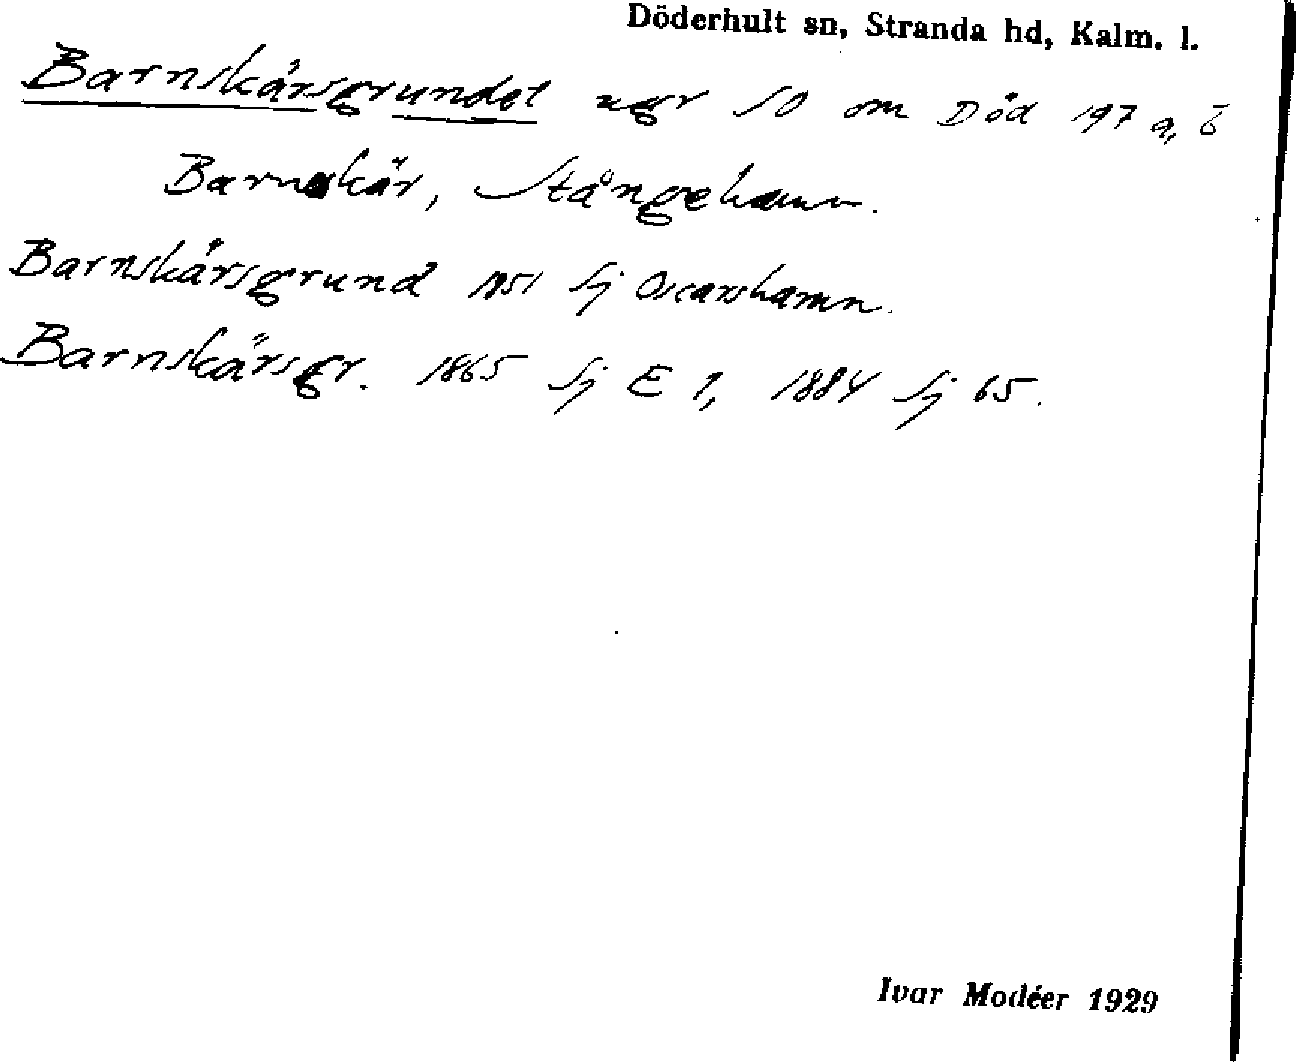 Döderhult sn, Stranda hd, Kalm. l.
Barnskärsgrundet ugr SO om Död 197 a, ö
Barnskär, Stångehamn.
Barnskärsgrund 1851 Sj Oscarshamn.
Barnskärsgr. 1865 Sj E 1, 1884 Sj 65.
Ivar Modéer 1929